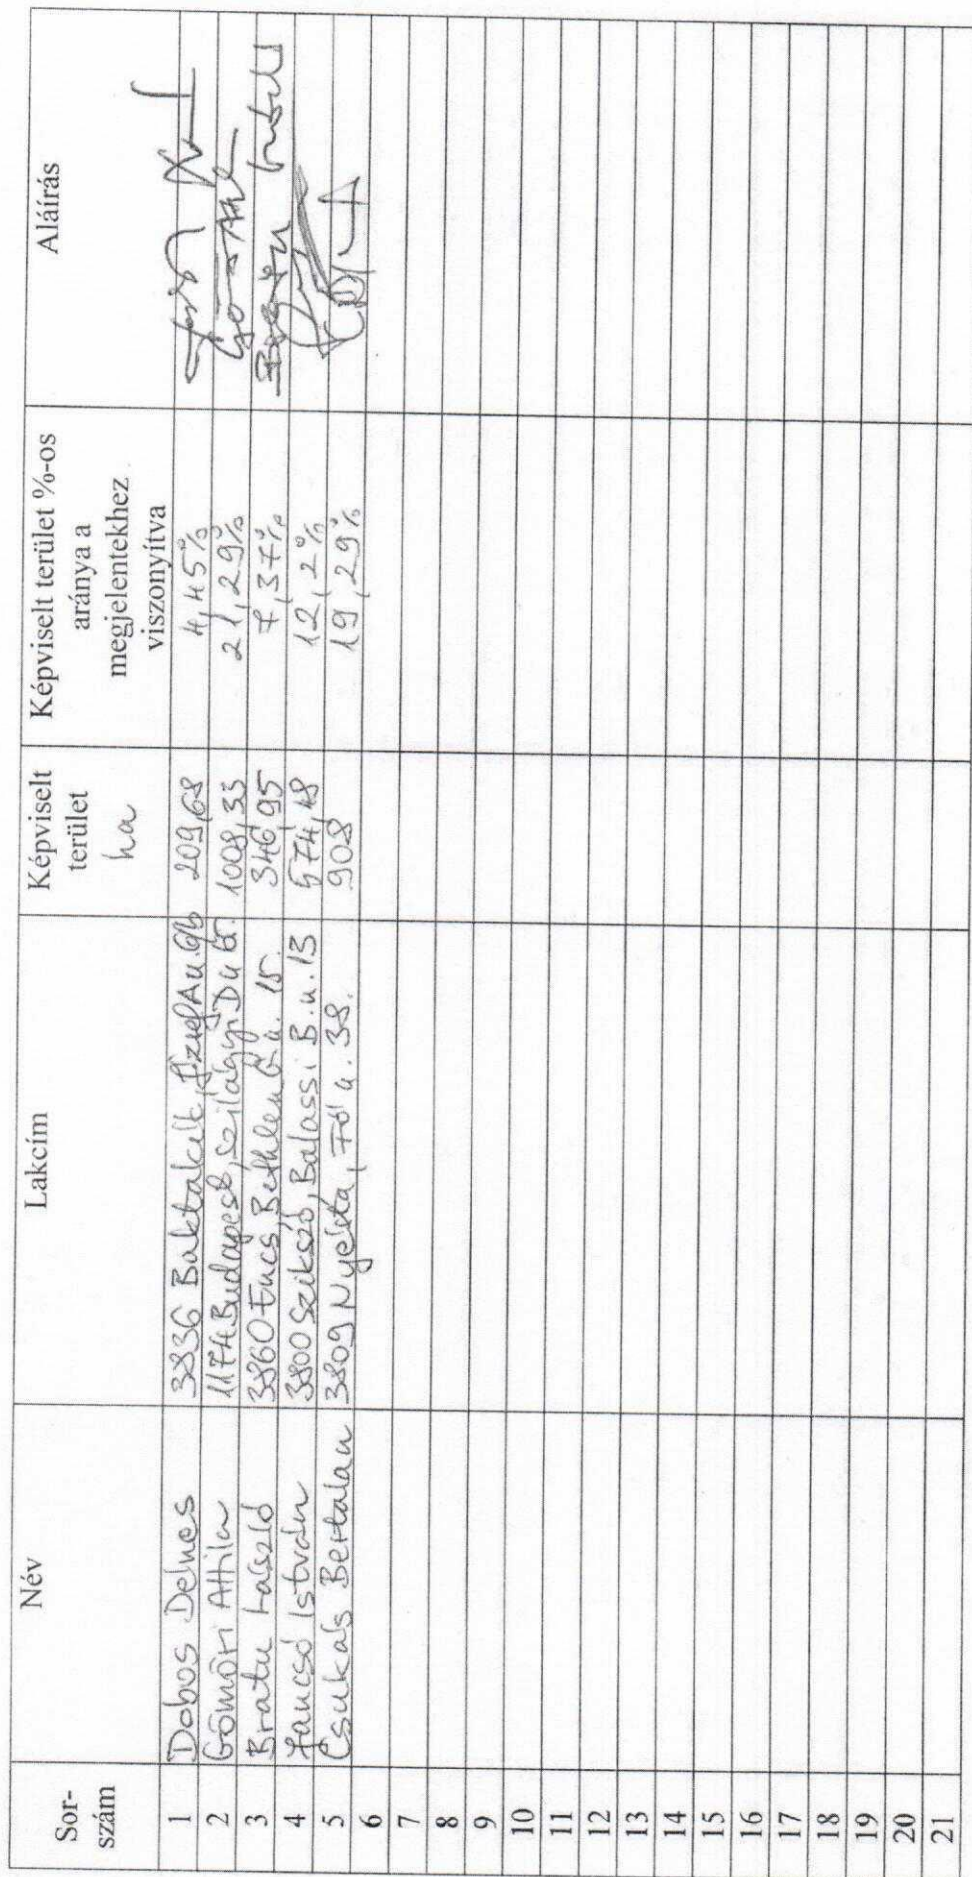 Sor-szám Név Lakcím Képviselt terület ha Képviselt terület %-os aránya a megjelentekhez viszonyítva Aláírás
1 Dobos Dénes 3836 Baktakék, József A u. 96 209,68 4,45%
2 Gömöri Attila 1174 Budapest, Szilágyi D u 67. 1008,33 21,29%
3 Bratu László 3860 Encs, Bethlen G u. 15. 346,95 7,37%
4 Jancsó István 3800 Szikszó, Balassi B. u. 13 574,48 12,2%
5 Csukás Bertalan 3809 Nyésta, Fő u. 38. 908 19,29%
6
7
8
9
10
11
12
13
14
15
16
17
18
19
20
21